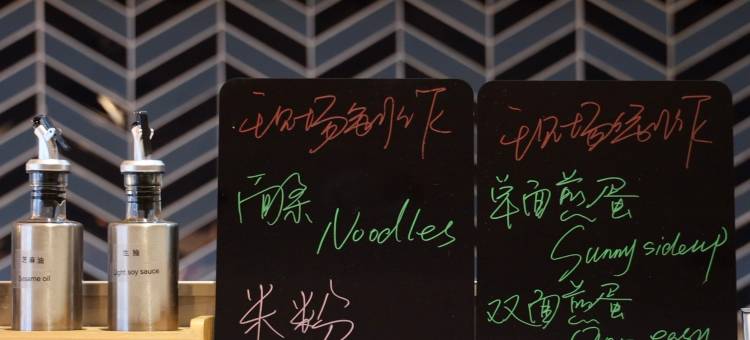 芝麻油
Sesame oil
生抽
Light soy sauce
现场制作
面条
Noodles
米粉
现场制作
单面煎蛋
Sunny sideup
双面煎蛋
easy